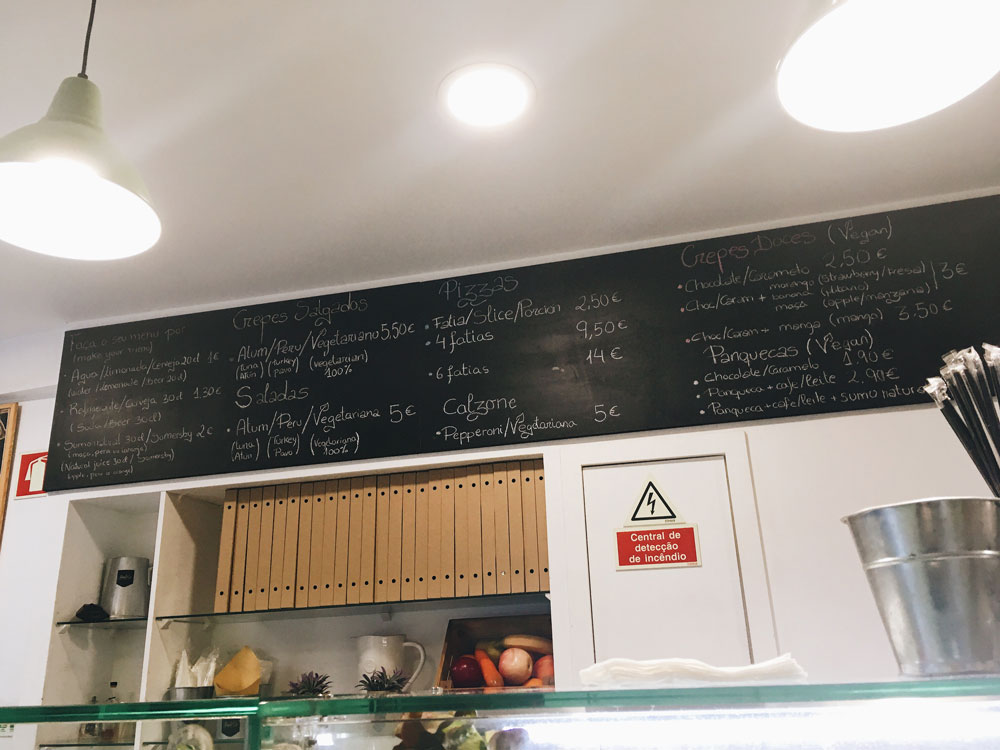 Faça o seu menu por
(make your menu)
Água/limonada/cerveja 20cl 1€
(water/Lemonade/Beer 20cl)
Refrigerante/Cerveja 30cl 1.30€
(Soda/Beer 30cl)
Sumo natural 30cl/Somersby 2€
(maçã, pera ou laranja)
(Natural juice 30cl/Somersby)
Crepes Salgados
• Atum/Peru/Vegetariano 5,50€
(tuna) (turkey) (vegetarian)
Atún) pavo) 100%
Saladas
• Atum/Peru/Vegetariana 5€
(tuna) (Turkey) (Vegetariana)
(Atún) (Pavo) 100%
Pizzas
• Fatia/Slice/Porcion 2,50€
• 4 fatias 9,50€
• 6 fatias 14€
Calzone
• Pepperoni/Vegetariana 5€
Crepes Doces (Vegan)
• Chocolate/Caramelo 2,50€
• Choc/Caram + morango (strawberry/fresa)
banana
maçã (apple/manzana) 3€
• Choc/Caram + manga (mango) 3.50€
Panquecas (Vegan)
• Chocolate/Caramelo 1.90€
• Panqueca + cafe/leite 2.90€
• Panqueca + cafe/leite + sumo natural
Central de
detecção
de incêndio